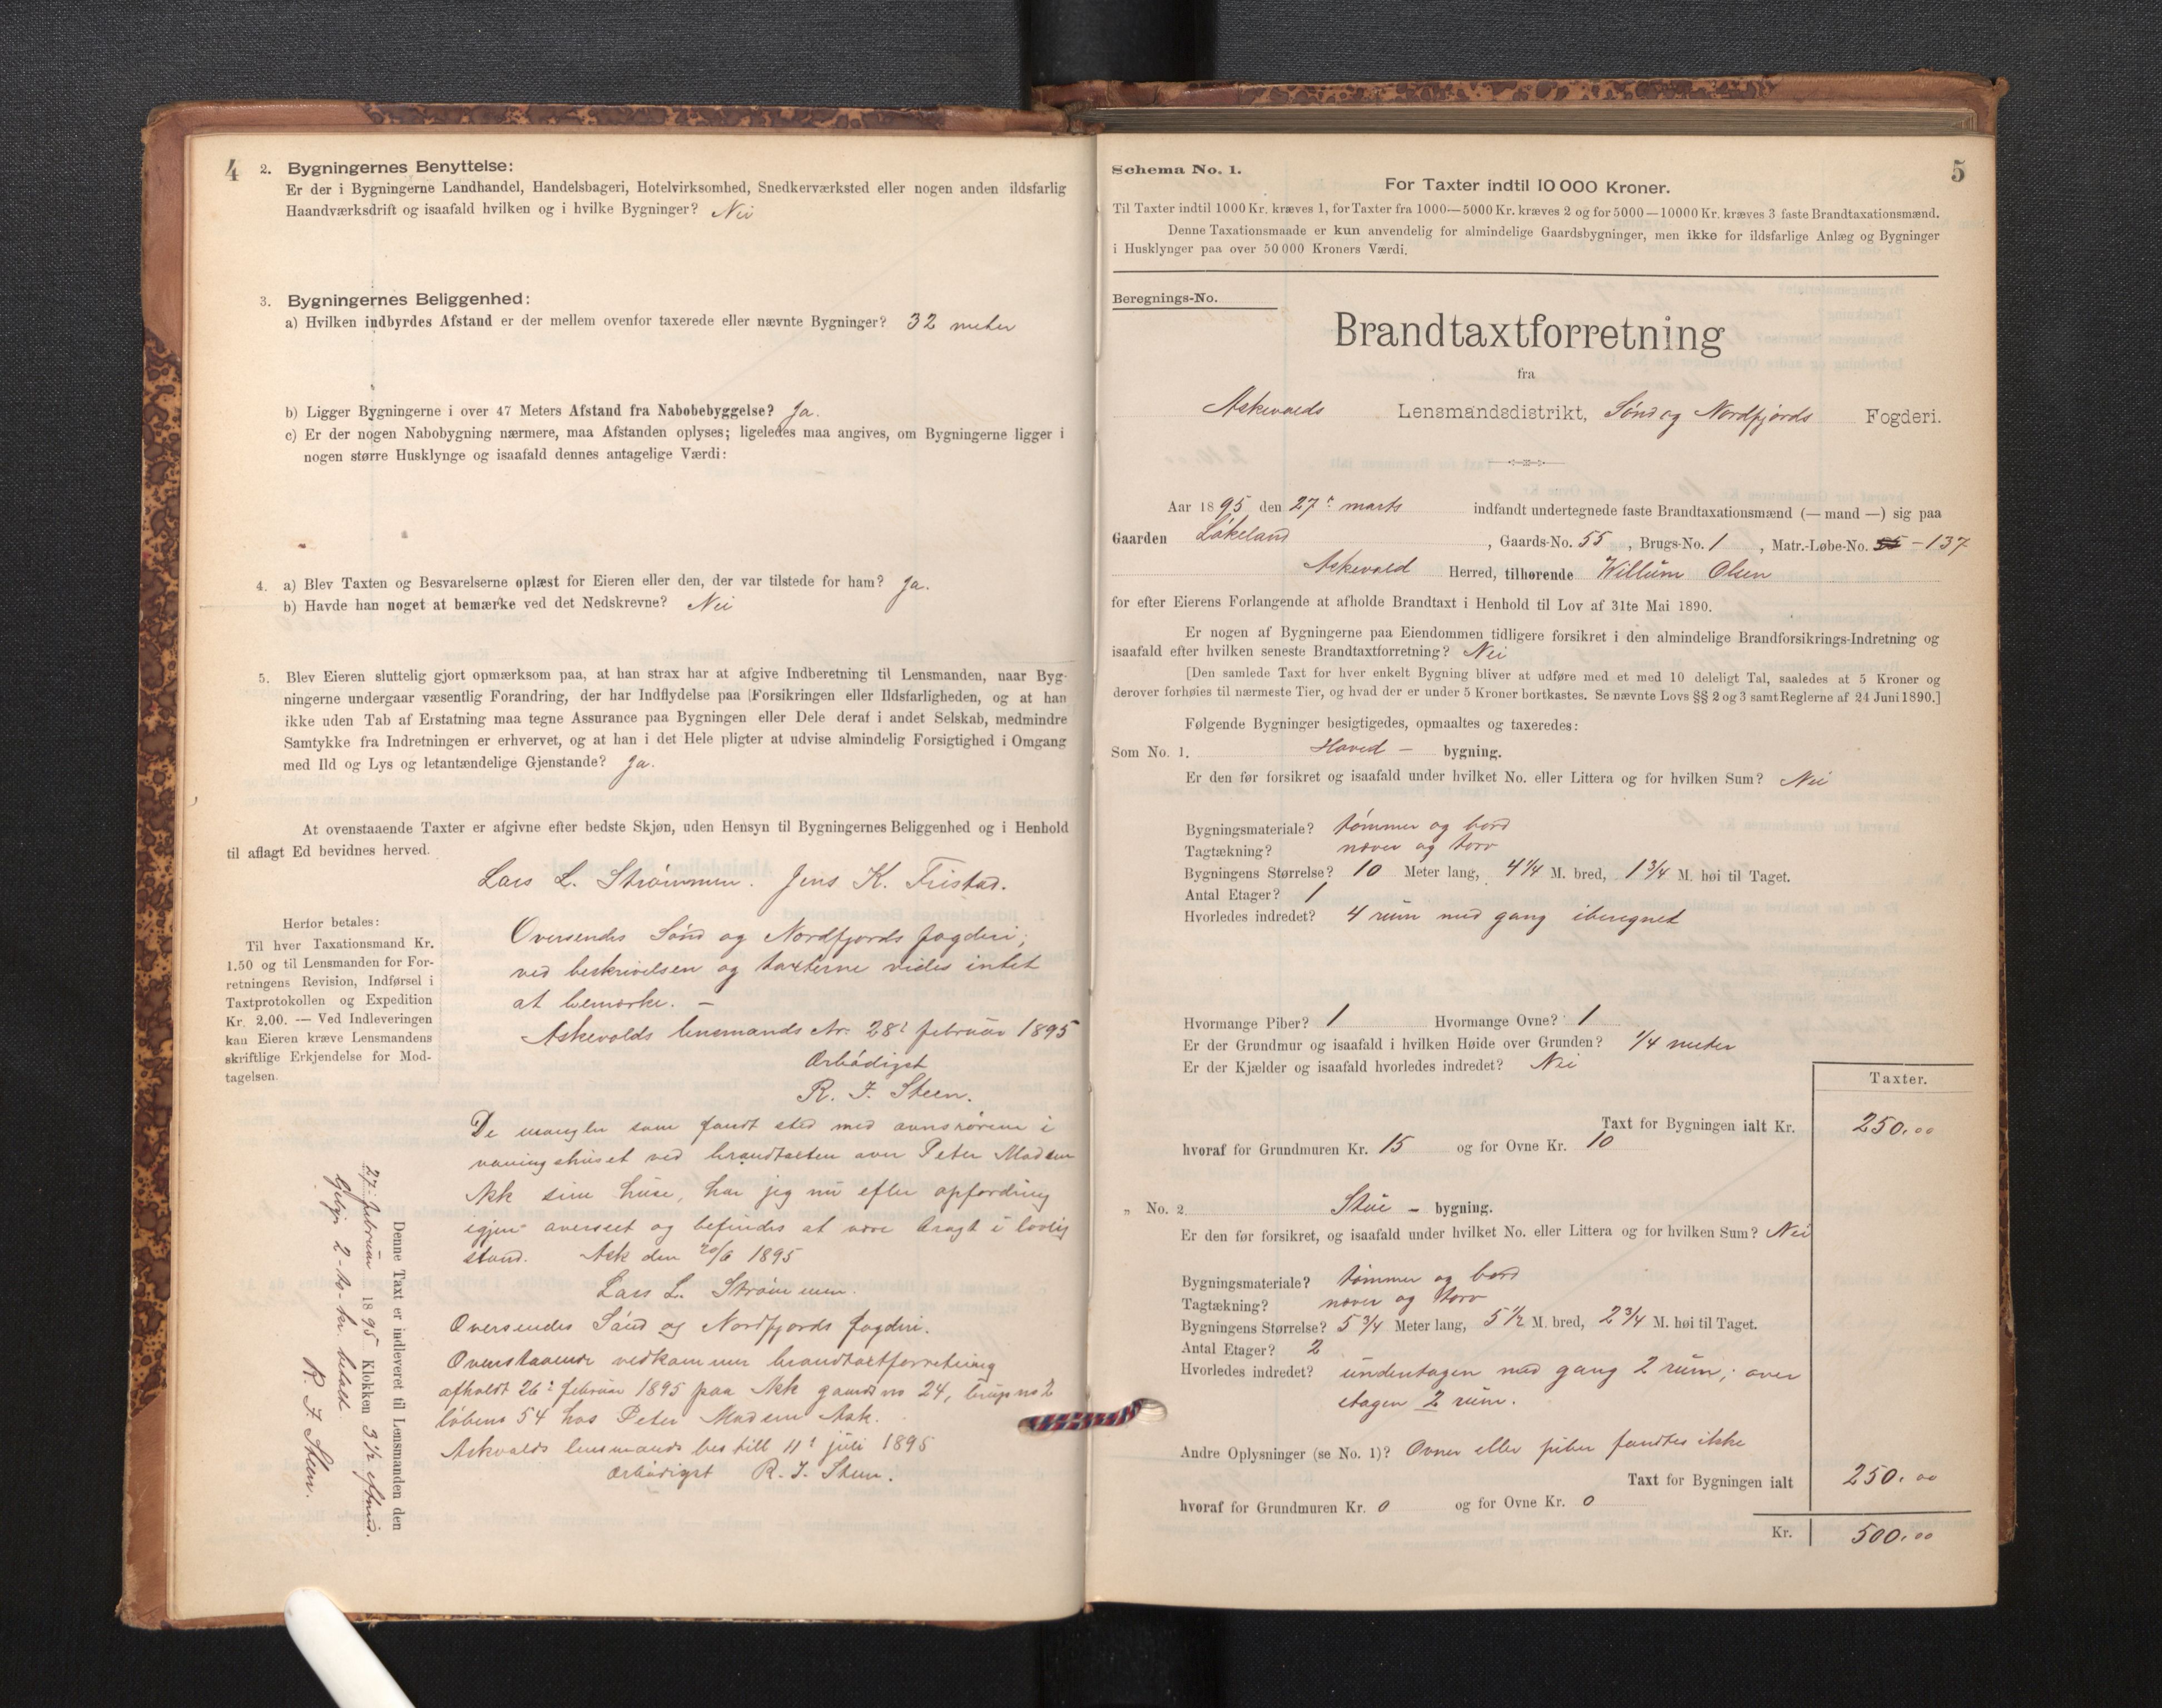 4
2. Bygningernes Benyttelse:
Er der i Bygningerne Landhandel, Handelsbageri, Hotelvirksomhed, Snedkerværksted eller nogen anden ildsfarlig
Haandværksdrift og isaafald hvilken og i hvilke Bygninger? Nei
3. Bygningernes Beliggenhed:
a) Hvilken indbyrdes Afstand er der mellem ovenfor taxerede eller nævnte Bygninger? 32 meter
b) Ligger Bygningerne i over 47 Meters Afstand fra Nabobebyggelse? Ja.
c) Er der nogen Nabobygning nærmere, maa Afstanden oplyses; ligeledes maa angives, om Bygningerne ligger i
nogen større Husklynge og isaafald dennes antagelige Værdi:
4. a) Blev Taxten og Besvarelserne oplæst for Eieren eller den, der var tilstede for ham? Ja.
b) Havde han noget at bemærke ved det Nedskrevne? Nei
5. Blev Eieren sluttelig gjort opmærksom paa, at han strax har at afgive Indberetning til Lensmanden, naar Byg-
ningerne undergaar væsentlig Forandring, der har Indflydelse paa Forsikringen eller Ildsfarligheden, og at han
ikke uden Tab af Erstatning maa tegne Assurance paa Bygningen eller Dele deraf i andet Selskab, medmindre
Samtykke fra Indretningen er erhvervet, og at han i det Hele pligter at udvise almindelig Forsigtighed i Omgang
med Ild og Lys og letantændelige Gjenstande? Ja.
At ovenstaaende Taxter er afgivne efter bedste Skjøn, uden Hensyn til Bygningernes Beliggenhed og i Henhold
til aflagt Ed bevidnes herved.
Lars L. Strømmen. Jens K. Fristad.
Herfor betales:
Til hver Taxationsmand Kr.
1.50 og til Lensmanden for For-
retningens Revision, Indførsel i
Taxtprotokollen og Expedition
Kr. 2.00. — Ved Indleveringen
kan Eieren kræve Lensmandens
skriftlige Erkjendelse for Mod-
tagelsen.
Oversendes Sønd og Nordfjords fogderi;
ved beskrivelsen og taxterne vides intet
at bemærke. –
Askevolds lensmands 28: februar 1895
Ærbødigst
R. J. Steen.
De mangler som fandt sted med ovnsrørene i
vaaningshuset ved brandtaxten over Peter Madsen
Ask sine huse, har jeg nu efter opfordring
igjen overseet og befindes at være bragt i lovlig
stand. Ask den 20/6 1895
Lars L. Strømmen.
Oversendes Sønd og Nordfjords fogderi.
Ovenstaaende vedkommer brandtaxtforretning
afholdt 26: februar 1895 paa Ask gaards no 24, brugs no 2
løbens 54 hos Peter Madsen Ask.
Askvolds lensmands bestill 11: juli 1895
ærbødigst R. J. Steen.
Denne Taxt er indleveret til Lensmanden den
27: februar 1895 Klokken 3 1/2 eftmid.
Gebyr 2 - to - kr betalt.
R. J. Steen.
5
Schema No. 1.
For Taxter indtil 10 000 Kroner.
Til Taxter indtil 1000 Kr. kræves 1, for Taxter fra 1000—5000 Kr. kræves 2 og for 5000—10000 Kr. kræves 3 faste Brandtaxationsmænd.
Denne Taxationsmaade er kun anvendelig for almindelige Gaardsbygninger, men ikke for ildsfarlige Anlæg og Bygninger
i Husklynger paa over 50 000 Kroners Værdi.
Beregnings-No.
Brandtaxtforretning
fra
Askevolds Lensmandsdistrikt, Sønd og Nordfjords Fogderi.
Aar 1895 den 27: marts indfandt undertegnede faste Brandtaxationsmænd (— mand —) sig paa
Gaarden Løkeland, Gaards-No. 55, Brugs-No. 1, Matr.-Løbe-No. 55 - 137
Askevold Herred, tilhørende Willum Olsen
for efter Eierens Forlangende at afholde Brandtaxt i Henhold til Lov af 31te Mai 1890.
Er nogen af Bygningerne paa Eiendommen tidligere forsikret i den almindelige Brandforsikrings-Indretning og
isaafald efter hvilken seneste Brandtaxtforretning? Nei
[Den samlede Taxt for hver enkelt Bygning bliver at udføre med et med 10 deleligt Tal, saaledes at 5 Kroner og
derover forhøies til nærmeste Tier, og hvad der er under 5 Kroner bortkastes. Se nævnte Lovs §§ 2 og 3 samt Reglerne af 24 Juni 1890.]
Følgende Bygninger besigtigedes, opmaaltes og taxeredes:
Som No. 1. Hoved – bygning.
Er den før forsikret og isaafald under hvilket No. eller Littera og for hvilken Sum? Nei
Bygningsmateriale? tømmer og bord
Tagtækning? næver og torv
Bygningens Størrelse? 10 Meter lang, 4 1/4 M. bred, 1 3/4 M. høi til Taget.
Antal Etager? 1
Hvorledes indredet? 4 rum med gang iberegnet
Hvormange Piber? 1 Hvormange Ovne? 1
Er der Grundmur og isaafald i hvilken Høide over Grunden? 1/4 meter
Er der Kjælder og isaafald hvorledes indredet? Nei
Taxter.
Taxt for Bygningen ialt Kr. 250.00
hvoraf for Grundmuren Kr. 15 og for Ovne Kr. 10
„ No. 2 Stue – bygning.
Er den før forsikret, og isaafald under hvilket No. eller Littera og for hvilken Sum? Nei
Bygningsmateriale? tømmer og bord
Tagtækning? næver og torv
Bygningens Størrelse? 5 3/4 Meter lang, 5 1/2 M. bred, 2 3/4 M. høi til Taget.
Antal Etager? 2
Hvorledes indredet? underetagen med gang 2 rum; over
etagen 2 rum.
Andre Oplysninger (se No. 1)? Ovner eller piber fandtes ikke
Taxt for Bygningen ialt 250.00
hvoraf for Grundmuren Kr. 0 og for Ovne Kr. 0
Kr. 500.00